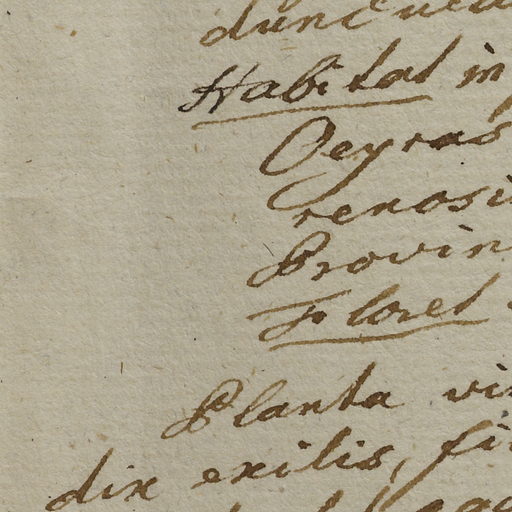 Habitat in
Oeyras
renosi
Provin
Floret
Planta vi
dix exilis, fi